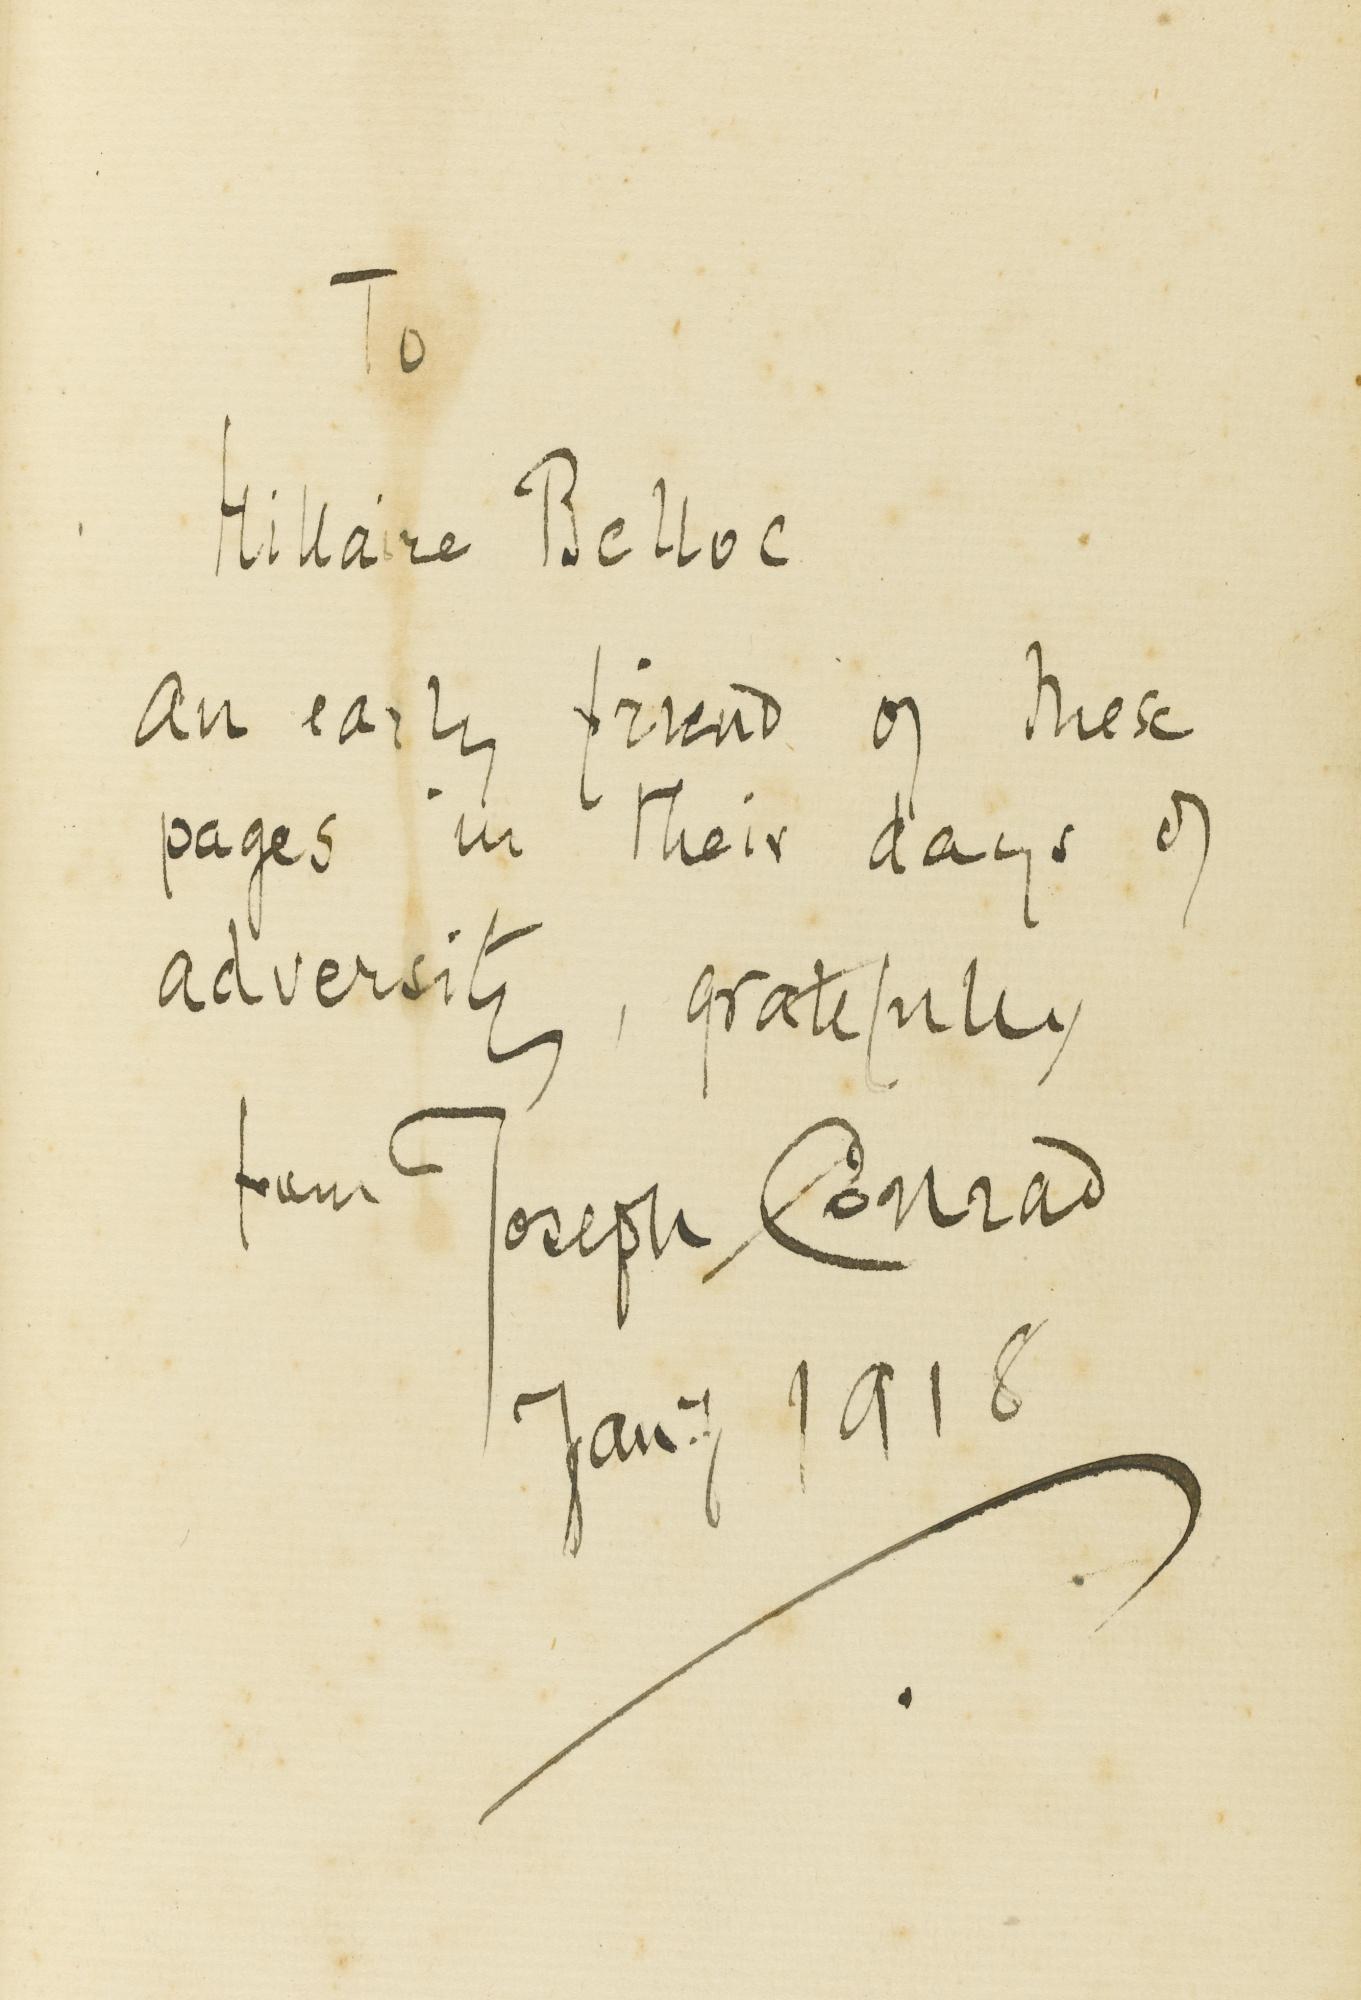 To
Hillaire Belloc
an early friend of these
pages in their days of
adversity, gratefully
from Joseph Conrad
Jany 1918